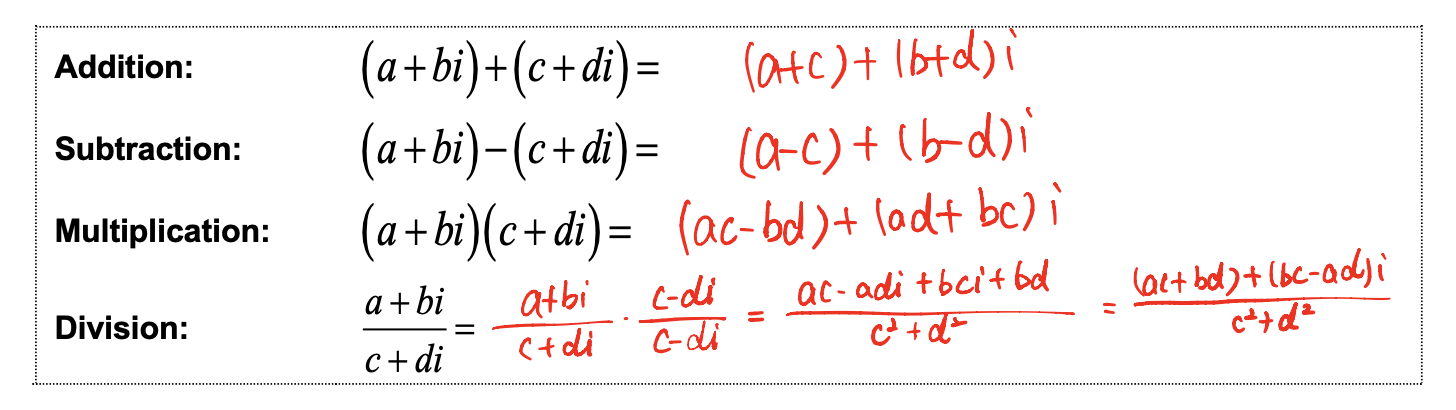 Addition: (a+bi)+(c+di)= (a+c)+(b+d)i
Subtraction: (a+bi)−(c+di)= (a-c)+(b-d)i
Multiplication: (a+bi)(c+di)= (ac-bd)+(ad+bc)i
Division: \frac{a+bi}{c+di} = \frac{a+bi}{c+di} · \frac{c-di}{c-di} = \frac{ac-adi+bci+bd}{c²+d²} = \frac{(ac+bd)+(bc-ad)i}{c²+d²}